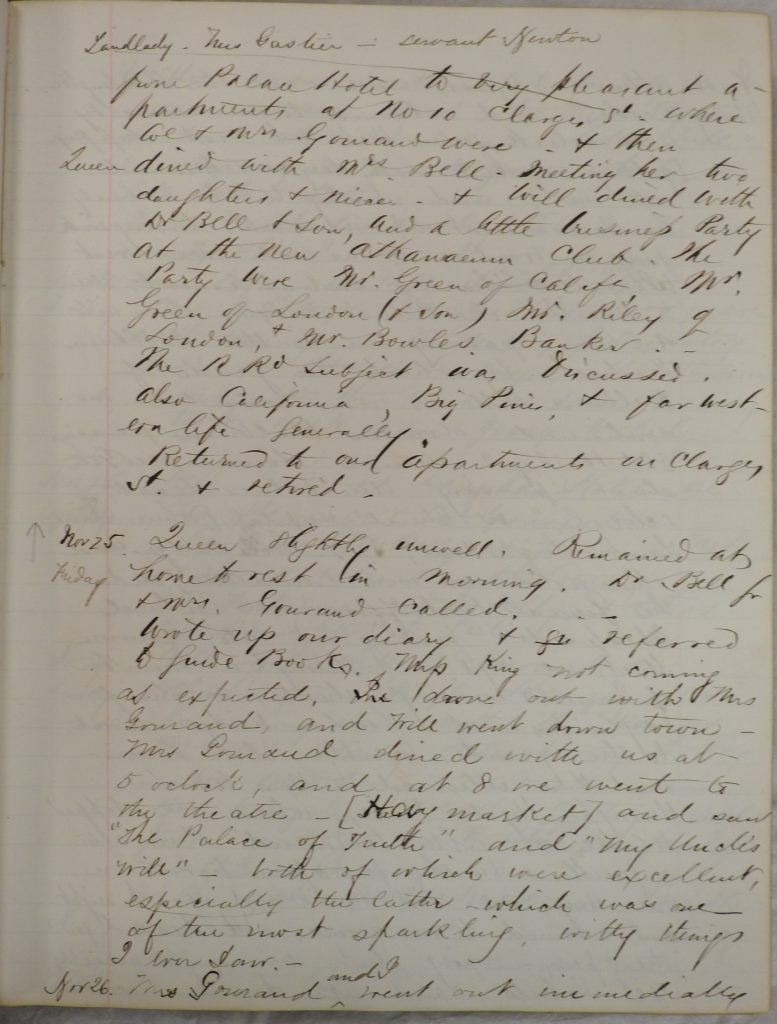 Landlady - Mrs Gastier - servant Newton
from Palace Hotel to very pleasant a-
partments at No 10 Clarges St. where
Col & Mrs Gouraud were - & then
Queen dined with Mrs Bell - meeting her two
daughters & niece - & Will dined with
Dr Bell & Son, and a little business Party
at the New Athanaeum Club. The
Party were Mr. Green of Calif, Mr.
Green of London (& Son) Mr. Riley of
London, & Mr. Bowles Banker. -
The R Rd subject was discussed.
also California, Big Pines, & far west-
ern life generally
Returned to our apartments on Clarges
St. & retired -
Nov 25. Queen slightly unwell. Remained at
Friday home to rest in morning. Dr Bell Jr
& Mrs. Gouraud called. -
Wrote up our diary & referred
to Guide Books. Mrs King not coming
as expected, She drove out with Mrs
Gouraud, and Will went down town -
Mrs Gouraud dined with us at
5 oclock, and at 8 we went to
the theatre - [Haymarket] and saw
"The Palace of Truth" and "My Uncle's
Will" - both of which were excellent,
especially the latter - which was one
of the most sparkling, witty things
I ever saw. -
Nov 26. Mrs Gouraud and I went out immediately